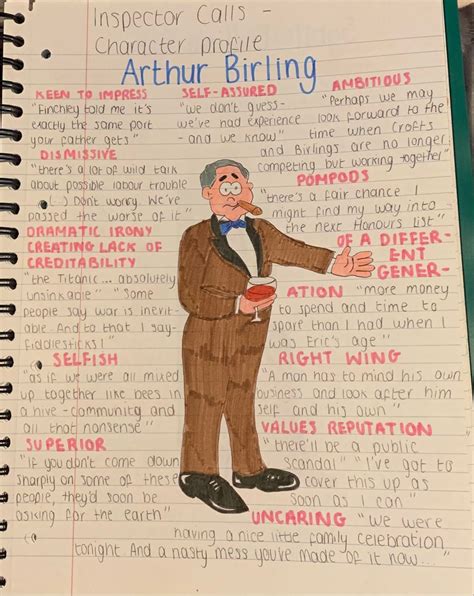 Inspector Calls -
Character profile
Arthur Birling
KEEN TO IMPRESS
"Finchley told me it's
exactly the same port
your father gets"
SELF-ASSURED
"we don't guess-
we've had experience
- and we know"
AMBITIOUS
"Perhaps we may
look forward to the
time when Crofts
and Birlings are no longer
competing but working together"
DISMISSIVE
"there's a lot of wild talk
about possible labour trouble
(...) Don't worry. We've
passed the worse of it"
POMPODS
"there's a fair chance I
might find my way into
the next Honours list"
DRAMATIC IRONY
CREATING LACK OF
CREDITABILITY
"the Titanic... absolutely
unsinkable" "Some
people say war is inevit-
able. And to that I say-
fiddlesticks!"
OF A DIFFER-
ENT
GENER-
ATION "more money
to spend and time to
spare than I had when I
was Eric's age"
SELFISH
"as if we were all mixed
up together like bees in
a hive - community and
all that nonsense"
RIGHT WING
"A man has to mind his own
business and look after him
self and his own"
SUPERIOR
"If you don't come down
sharply on some of these
people, they'd soon be
asking for the earth"
VALUES REPUTATION
"there'll be a public
scandal" "I've got to
cover this up as
soon as I can"
UNCARING "We were
having a nice little family celebration
tonight And a nasty mess you've made of it now..."